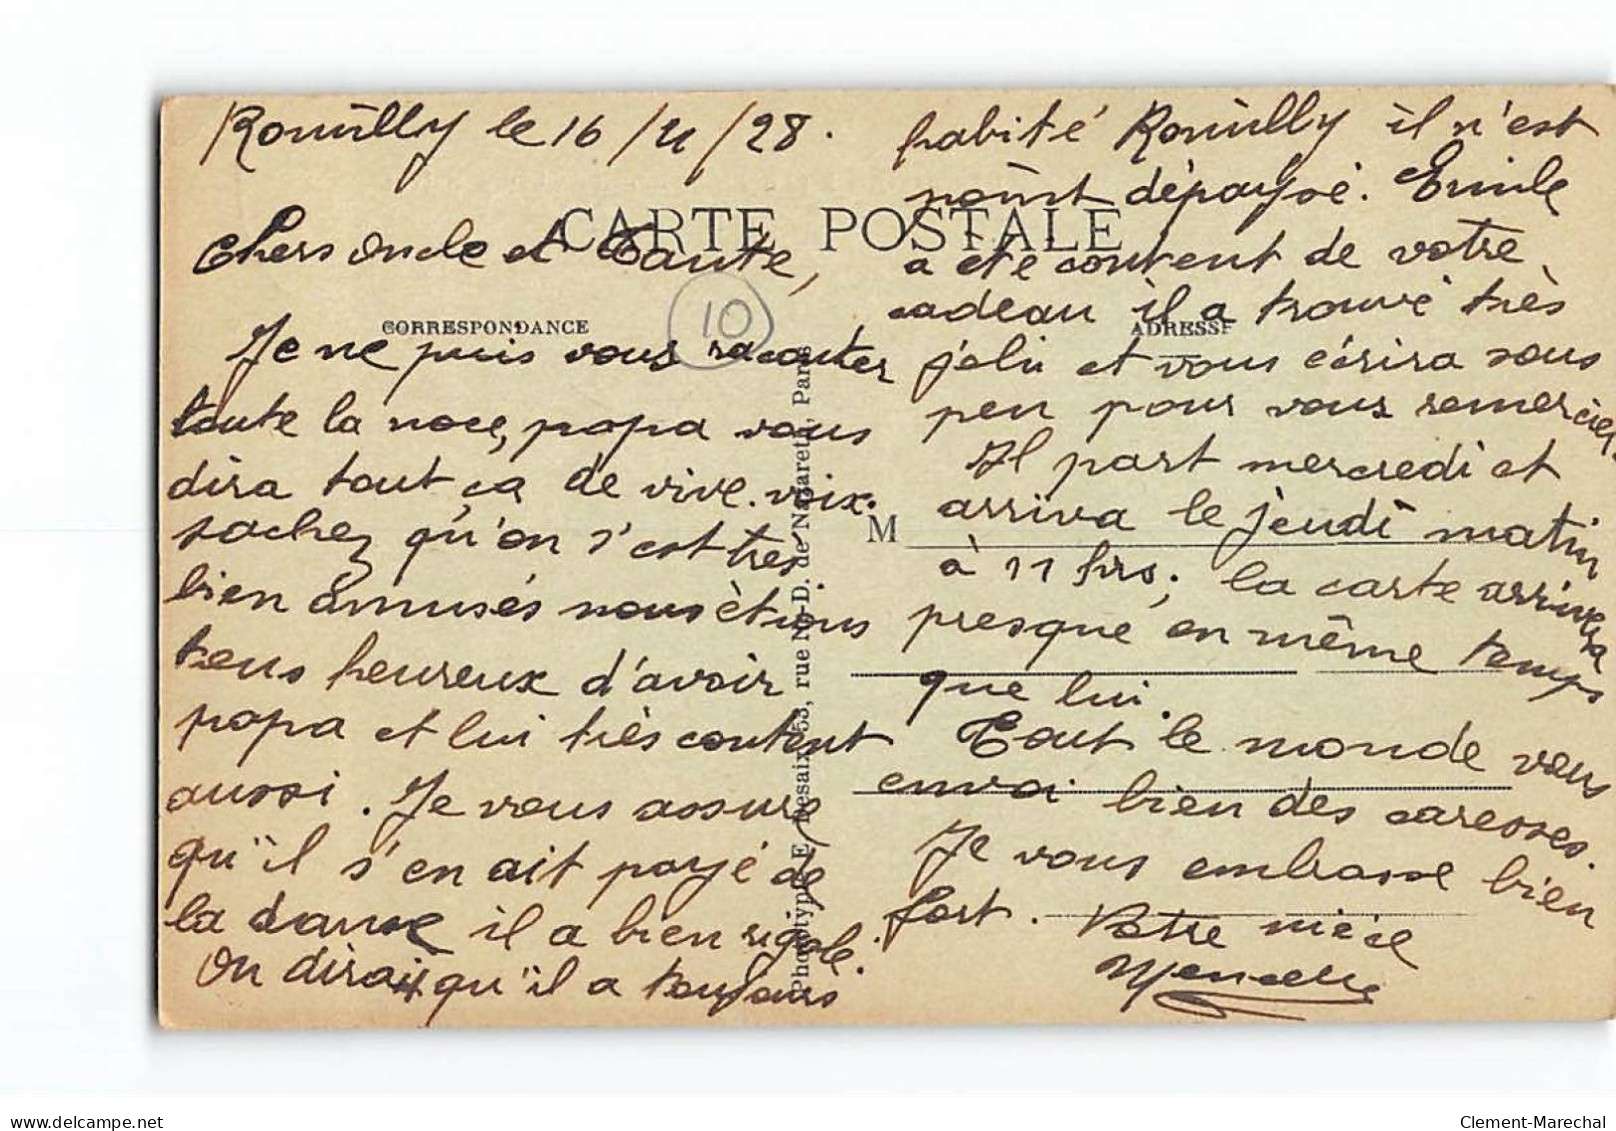 Rouilly le 16/4/28.
Chers Oncle et Tante,
CARTE POSTALE
CORRESPONDANCE
10
Je ne puis vous raconter
toute la noce, papa vous
dira tout ça de vive-voix.
sachez qu'on s'est très
bien amusés nous étions
tous heureux d'avoir
papa et lui très content
aussi. Je vous assure
qu'il s'en ait payé de
la danse il a bien rigolé.
On dirait qu'il a toujours
habité Rouilly il n'est
point dépaysé. Emile
a été content de votre
cadeau il a trouvé très
ADRESSE
joli et vous écrira sous
peu pour vous remercier.
Il part mercredi et
arriva le jeudi matin
M
à 11 hrs; la carte arrivera
presque en même temps
que lui.
Tout le monde vous
envoi bien des caresses.
Je vous embrasse bien
fort. Votre nièce
Phototypie E. Desaix, 53, rue N.-D. de Nazareth, Paris
delcampe.net
Clement-Marechal